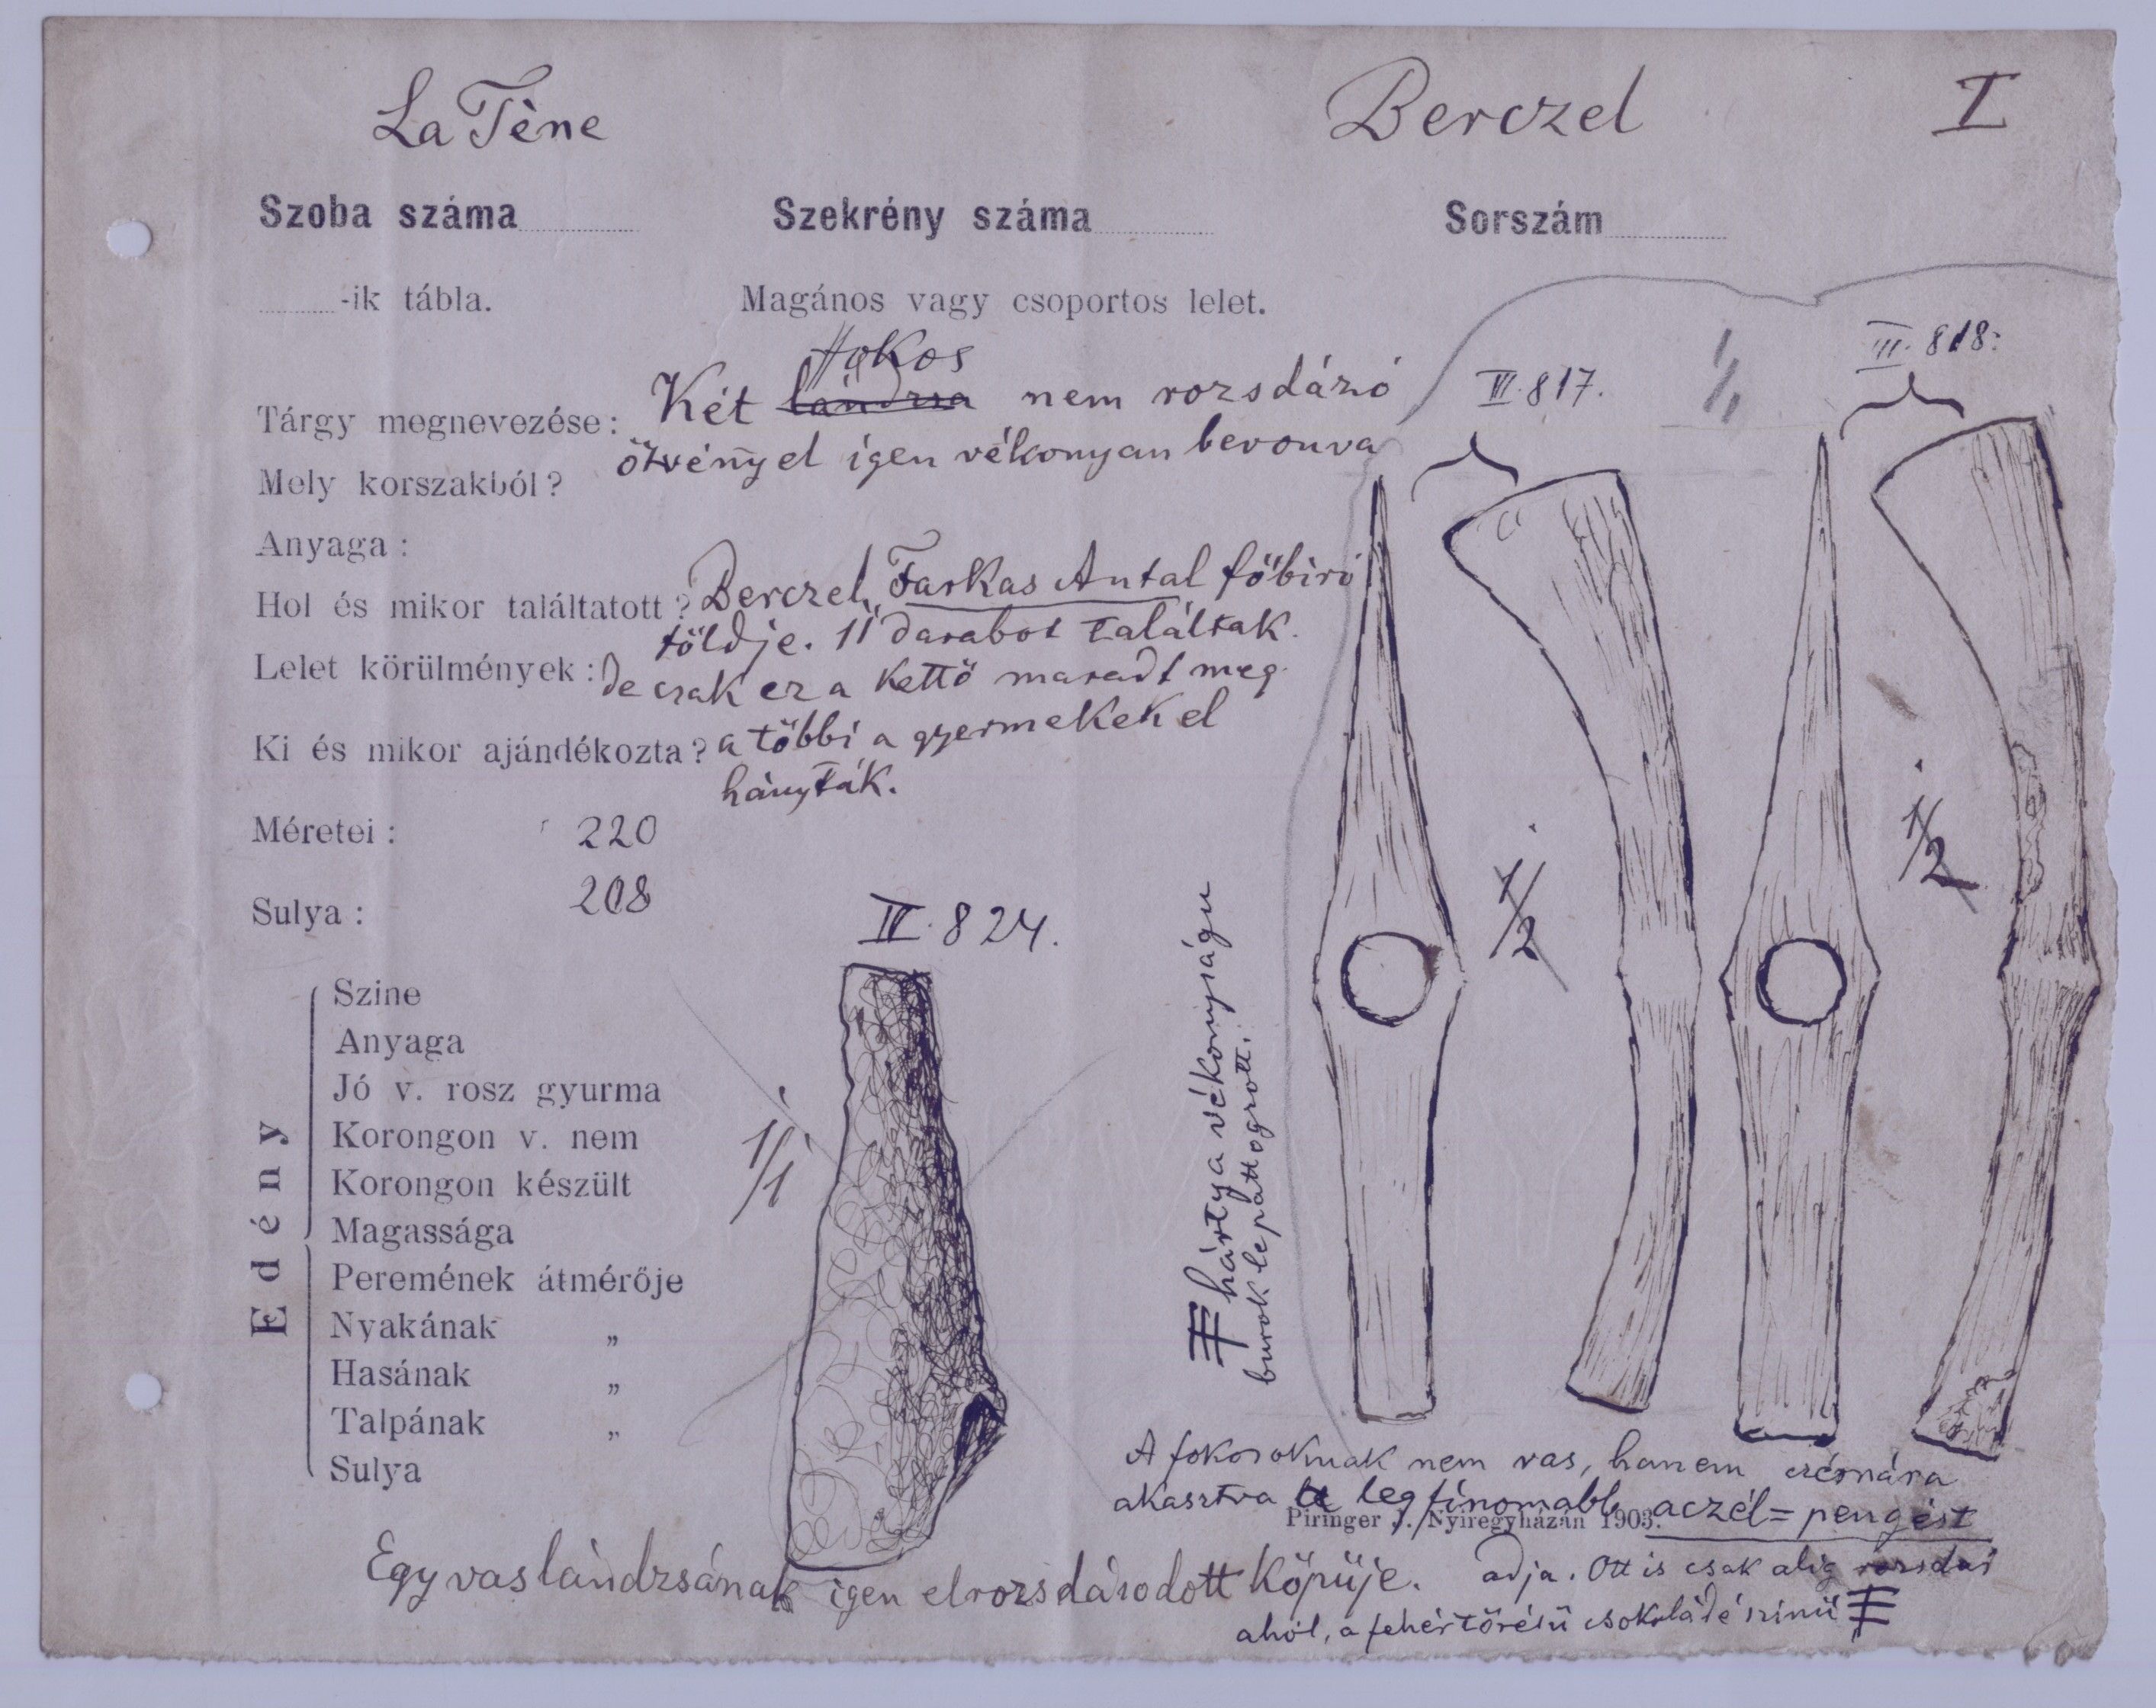 La Tène
Berczel
I
Szoba száma
Szekrény száma
Sorszám
-ik tábla.
Magános vagy csoportos lelet.
fokos
Tárgy megnevezése: Két lándzsa nem rozsdázó
ötvénnyel igen vékonyan bevonva
Mely korszakból?
Anyaga :
Hol és mikor találtatott? Berczel, Farkas Antal főbiró
földje. 11 darabot találtak.
Lelet körülmények : De csak ez a kettő maradt meg.
Ki és mikor ajándékozta? a többi a gyermekek el
hányták.
Méretei : 220
208
Sulya :
III. 817.
1/1
III. 818.
1/2
1/2
IV. 824.
1/1
Edény
Szine
Anyaga
Jó v. rosz gyurma
Korongon v. nem
Korongon készült
Magassága
Peremének átmérője
Nyakának „
Hasának „
Talpának „
Sulya
hártya vékonyságu
burok lepattogzott.
A fokosoknak nem vas, hanem czérnára
akasztva legfinomabb aczél=pengést
Piringer J. Nyiregyházán 1903.
adja. Ott is csak alig rozsdás
ahol, a fehértörésü csokoládé szinü
Egy vaslándzsának igen elrozsdásodott köpüje.